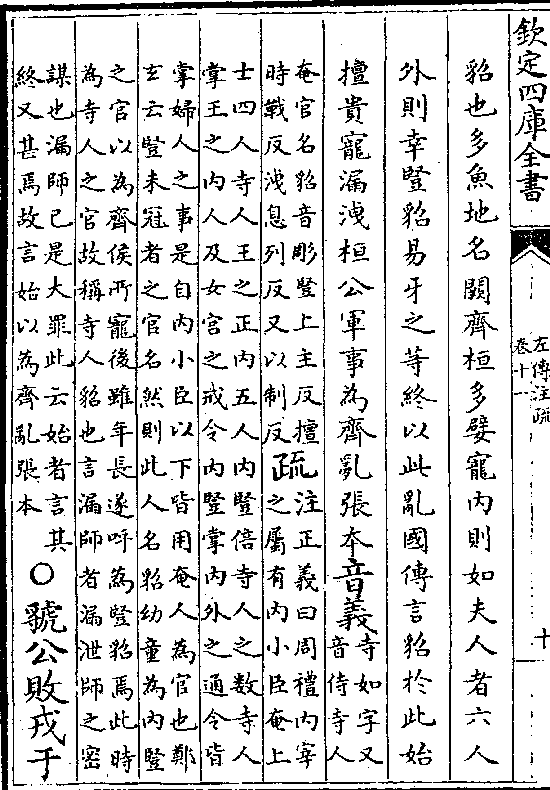 欽定四庫全書
左傳注疏
卷十一
十
貂也多魚地名闕齊桓多嬖寵内則如夫人者六人
外則幸豎貂易牙之等終以此亂國傳言貂於此始
擅貴寵漏洩桓公軍事為齊亂張本音義
寺如字又
音侍寺人
奄官名貂音彫豎上主反擅
時戰反洩息列反又以制反
疏
注正義曰周禮内宰
之屬有内小臣奄上
士四人寺人王之正内五人内豎倍寺人之數寺人
掌王之内人及女宫之戒令内豎掌内外之通令皆
掌婦人之事是自内小臣以下皆用奄人為官也鄭
玄云豎未冠者之官名然則此人名貂幼童為内豎
之官以為齊侯所寵後雖年長遂呼為豎貂焉此時
為寺人之官故稱寺人貂也言漏師者漏泄師之密
謀也漏師已是大罪此云始者言其
終又甚焉故言始以為齊亂張本
○虢公敗戎于